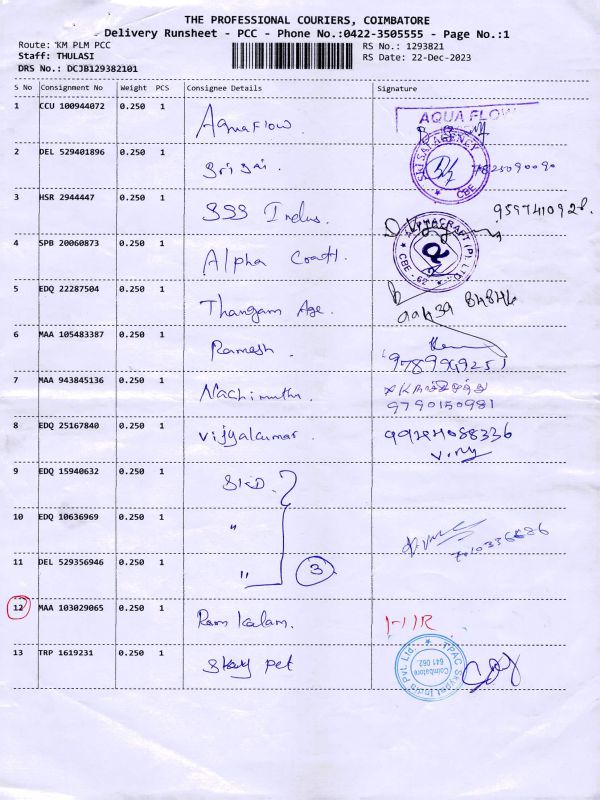 THE PROFESSIONAL COURIERS, COIMBATORE
Delivery Runsheet - PCC - Phone No.:0422-3505555 - Page No.:1
Route: KM PLM PCC RS No.: 1293821
Staff: THULASI RS Date: 22-Dec-2023
DRS No.: DCJB129382101
S No Consignment No Weight PCS Consignee Details Signature
1 CCU 100944072 0.250 1 Aquaflow AQUA FLOW
2 DEL 529401896 0.250 1 Sri Sai SRI SAI AGENCY CBE
3 HSR 2944447 0.250 1 SSS Indus.
4 SPB 20060873 0.250 1 Alpha ALPHACRAFT (P) LTD CBE - 29
5 EDQ 22287504 0.250 1 Thangam Age.
6 MAA 105483387 0.250 1 Ramesh
7 MAA 943845136 0.250 1 Nachimuthu 9790150981
8 EDQ 25167840 0.250 1 Vijyalkumar
9 EDQ 15940632 0.250 1
10 EDQ 10636969 0.250 1 "
11 DEL 529356946 0.250 1 " 3
12 MAA 103029065 0.250 1 Ram Kalam.
13 TRP 1619231 0.250 1 Skay pet TPAC Skypet India Pvt. Ltd. Coimbatore 641 062.